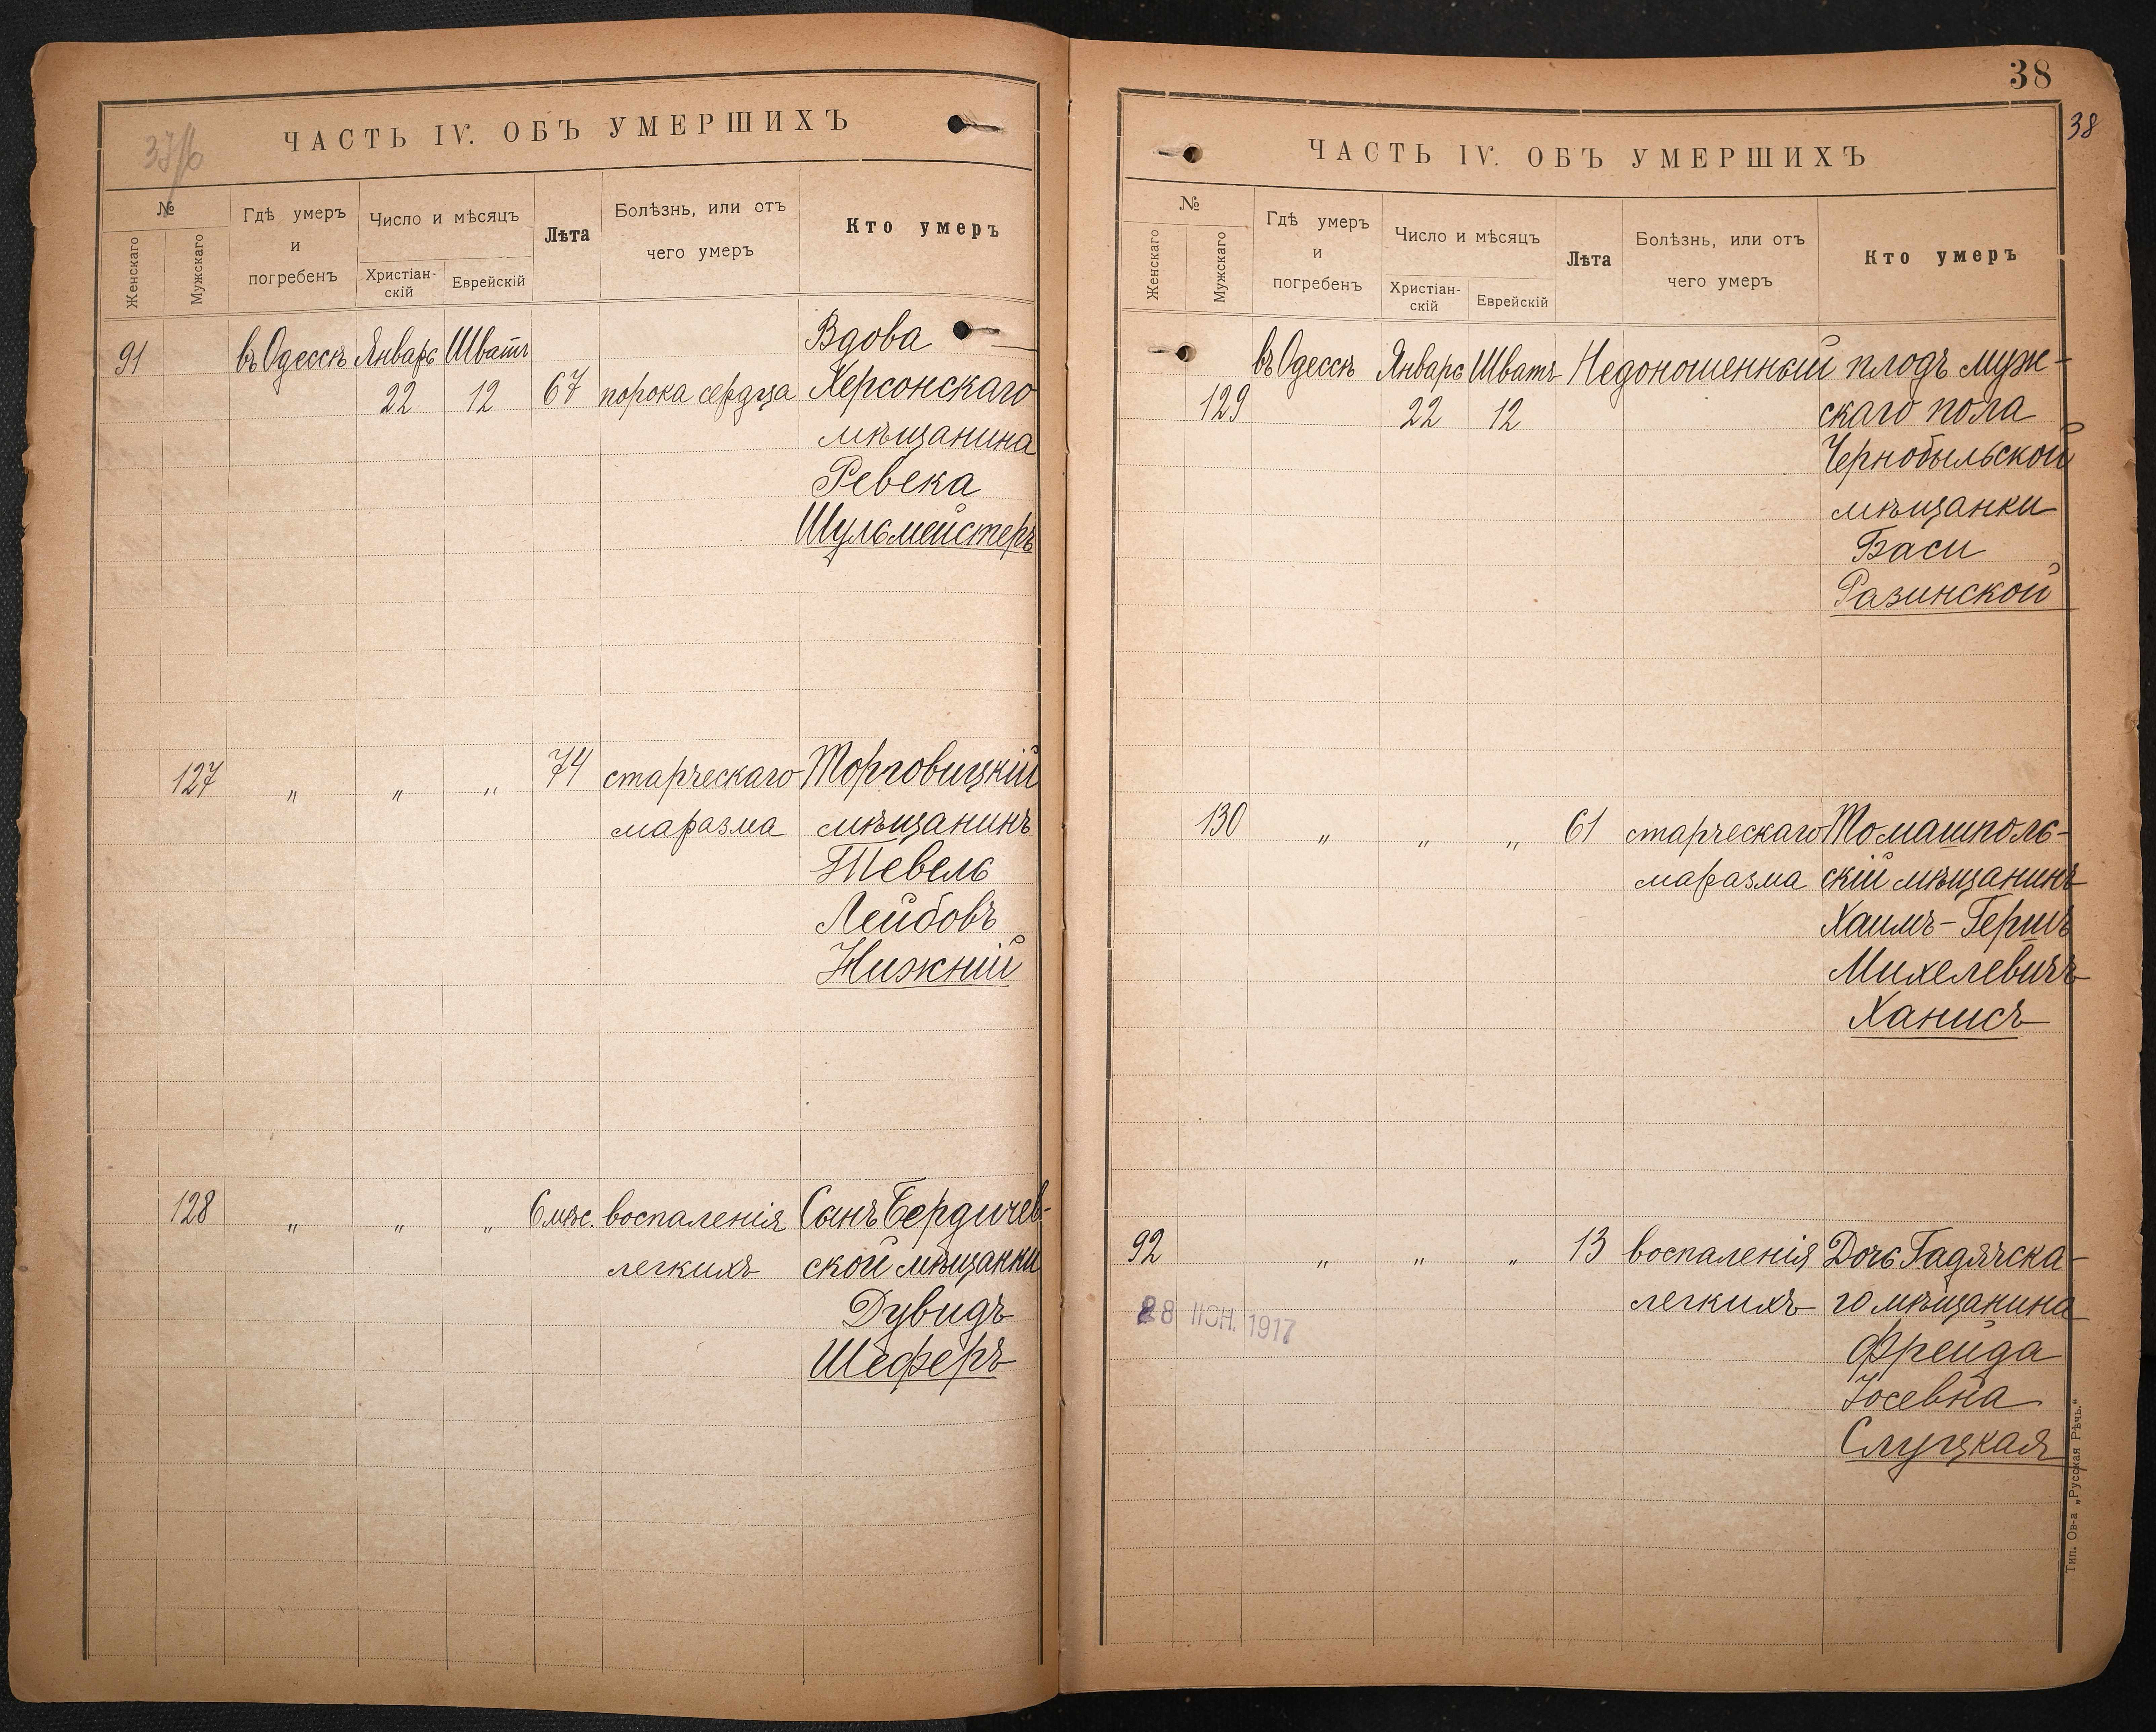 37/б
ЧАСТЬ IV. ОБЪ УМЕРШИХЪ
№
Женскаго
Мужскаго
Гдѣ умеръ
и
погребенъ
Число и мѣсяцъ
Христіан-
скій
Еврейскій
Лѣта
Болѣзнь, или отъ
чего умеръ
Кто умеръ
91 въ Одессѣ Январь Шватъ Вдова
22 12 67 порока сердца Херсонскаго
мѣщанина
Ревека
Шульмейстеръ
127 „ „ „ 74 старческаго Торговицкій
маразма мѣщанинъ
Тевель
Лейбовъ
Нижній
128 „ „ „ 6 мѣс. воспаленія Сынъ Бердичев-
легкихъ ской мѣщанки
Дувидъ
Шеферъ
38
38
ЧАСТЬ IV. ОБЪ УМЕРШИХЪ
№
Женскаго
Мужскаго
Гдѣ умеръ
и
погребенъ
Число и мѣсяцъ
Христіан-
скій
Еврейскій
Лѣта
Болѣзнь, или отъ
чего умеръ
Кто умеръ
въ Одессѣ Январь Шватъ Недоношенный плодъ муж-
129 22 12 скаго пола
Чернобыльской
мѣщанки
Баси
Разинской
130 „ „ „ 61 старческаго Томашполь-
маразма скій мѣщанинъ
Хаимъ-Гершъ
Михелевичъ
Ханисъ
92 „ „ „ 13 воспаленія Дочь Гадячска-
легкихъ го мѣщанина
Фрейда
Іосевна
Слуцкая
28 ІЮН. 1917
Тип. Ов-а „Русская Рѣчь.“